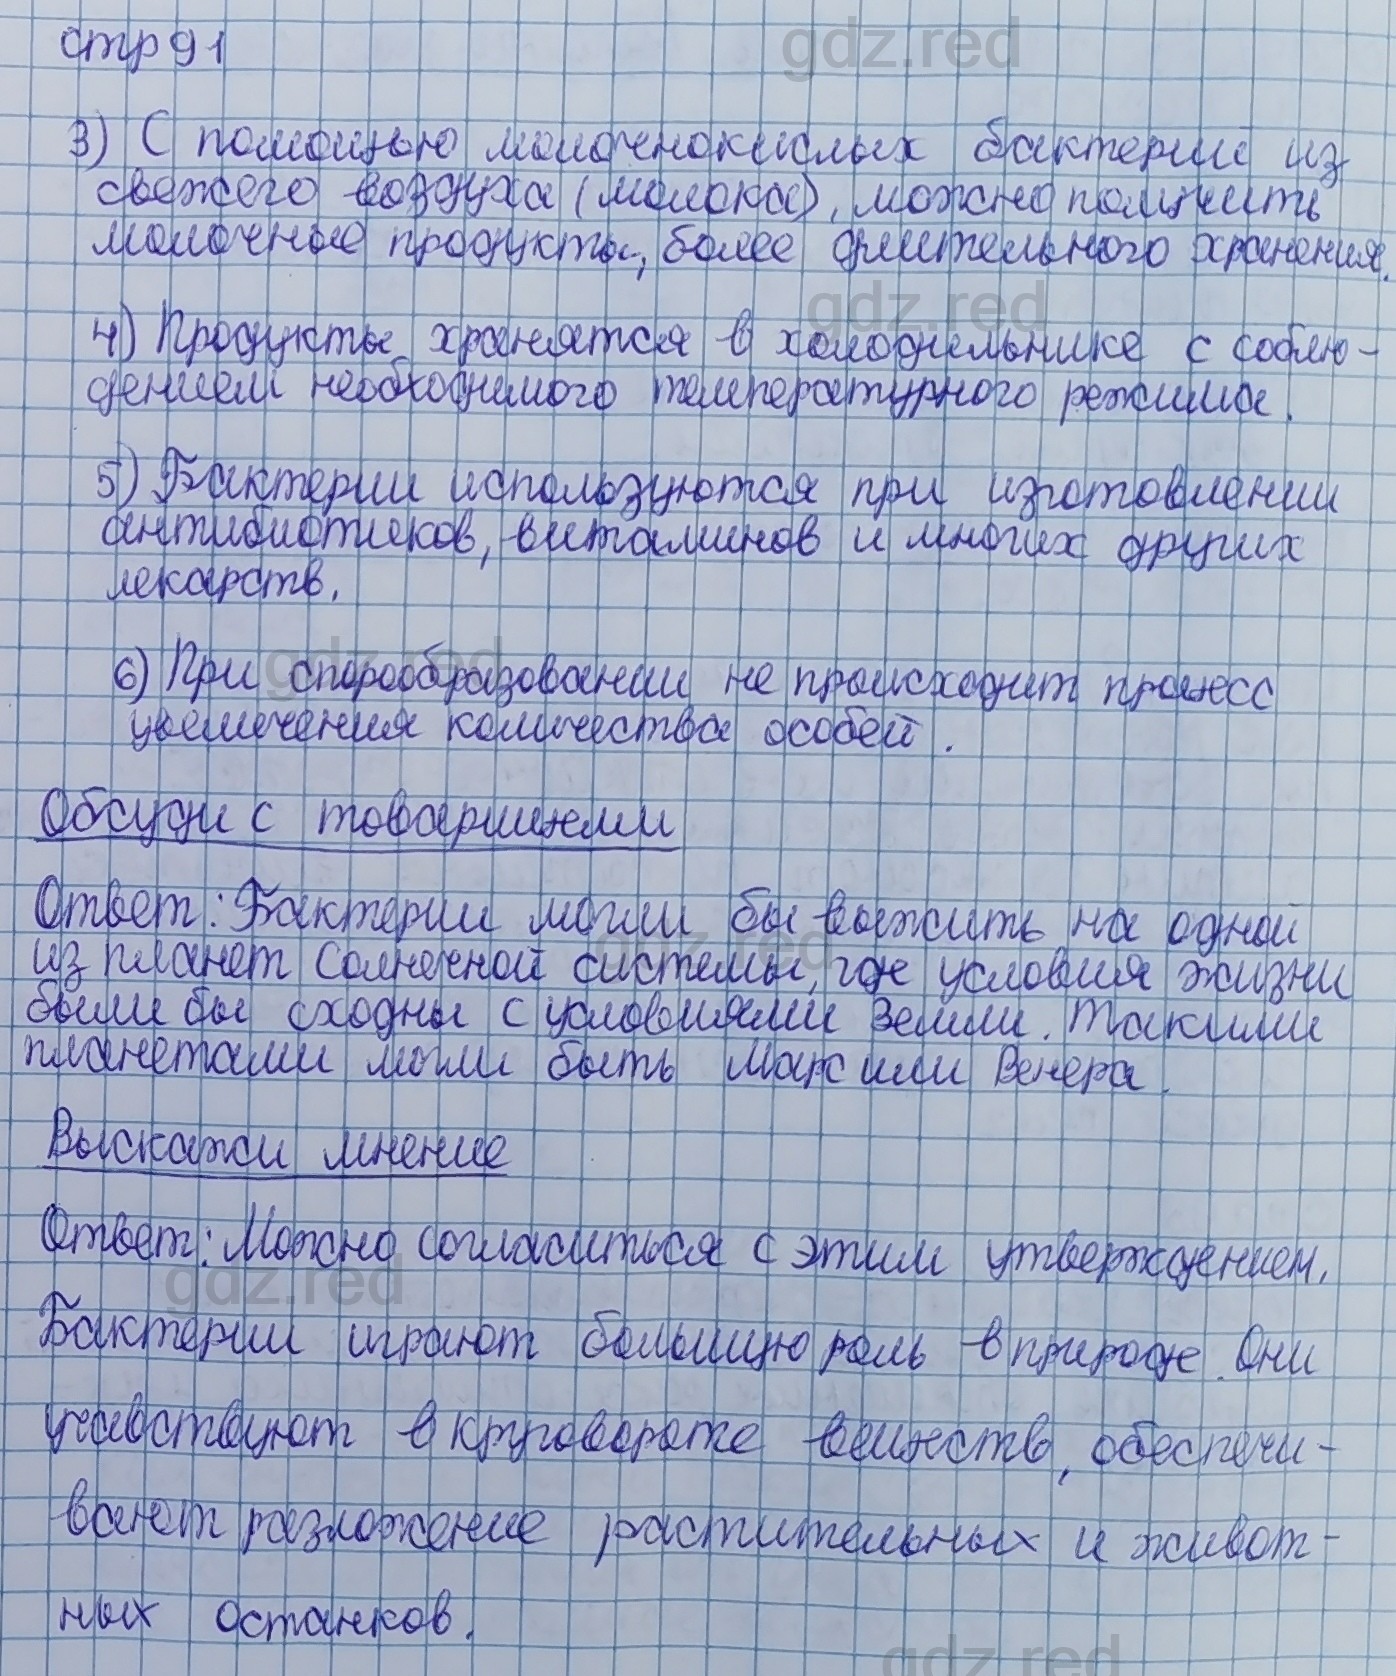 стр 91
gdz.red
3) С помощью молочнокислых бактерий из
свежего воздуха (молока), можно получить
молочные продукты, более длительного хранения.
gdz.red
4) Продукты хранятся в холодильнике с соблю-
дением необходимого температурного режима.
5) Бактерии используются при изготовлении
антибиотиков, витаминов и многих других
лекарств.
gdz.red
6) При спорообразовании не происходит процесс
увеличения количества особей.
Обсуди с товарищами
Ответ: Бактерии могли бы выжить на одной
gdz.red
из планет Солнечной системы, где условия жизни
были бы сходны с условиями Земли. Такими
планетами могли быть Марс или Венера.
Выскажи мнение
Ответ: Можно согласиться с этим утверждением.
gdz.red
Бактерии играют большую роль в природе. Они
учавствуют в круговороте веществ, обеспечи-
вают разложение растительных и живот-
ных останков.
gdz.red